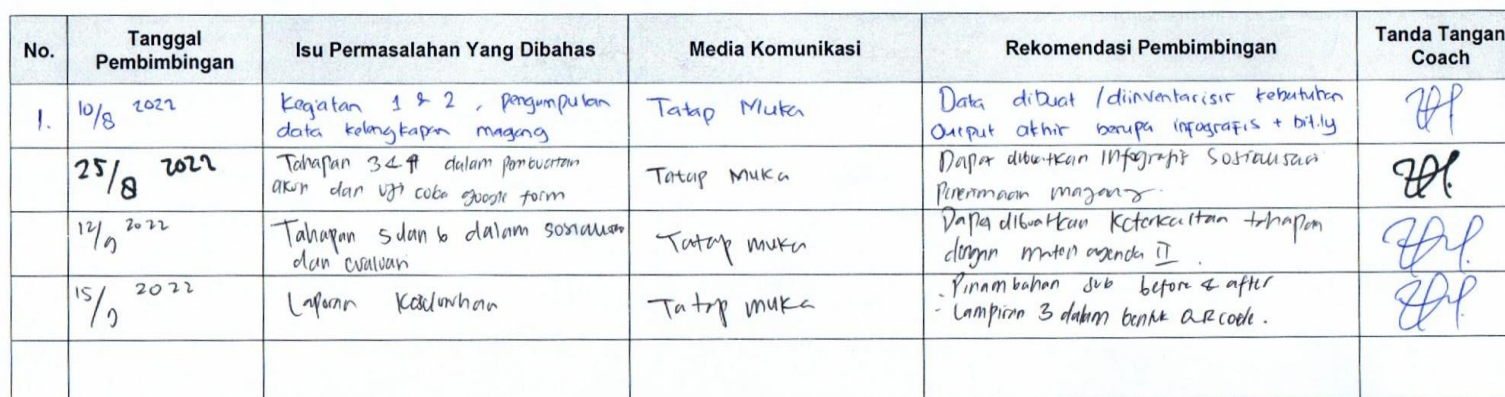 No.
Tanggal
Pembimbingan
Isu Permasalahan Yang Dibahas
Media Komunikasi
Rekomendasi Pembimbingan
Tanda Tangan
Coach
1.
10/8 2022
Kegiatan 1 & 2, pengumpulan
data kelengkapan magang
Tatap Muka
Data dibuat / diinventarisir kebutuhan
Output akhir berupa infografis + bit.ly
25/8 2022
Tahapan 3 & 4 dalam pembuatan
akun dan uji coba google form
Tatap Muka
Dapat dibuatkan Infografis Sosialisasi
Penerimaan magang.
12/9 2022
Tahapan 5 dan 6 dalam sosialisasi
dan evaluasi
Tatap muka
Dapat dibuatkan Keterkaitan tahapan
dengan materi agenda II.
15/9 2022
Laporan Keseluruhan
Tatap muka
- Penambahan sub before & after
- Lampiran 3 dalam bentuk QR code.